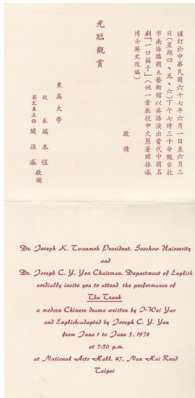 謹訂於中華民國六十七年六月一日至六月三
日(星期四、五、六)下午七時三十分假台北
市南海路國立藝術館以英語演出當代中國名
劇「一口箱子」(姚一葦教授中文原著閻振瀛
博士英文改編)
敬請
光臨觀賞
東吳大學
校長 端木愷
英文系主任 閻振瀛 敬邀
Dr. Joseph K. Twanmoh President, Soochow University
and
Dr. Joseph C. Y. Yen Chairman, Department of English
cordially invite you to attend the performance of
The Trunk
a modern Chinese drama written by I-Wei Yao
and English-adapted by Joseph C. Y. Yen
from June 1 to June 3, 1978
at 7:30 p.m.
at National Arts Hall, 47, Nan Hai Road
Taipei